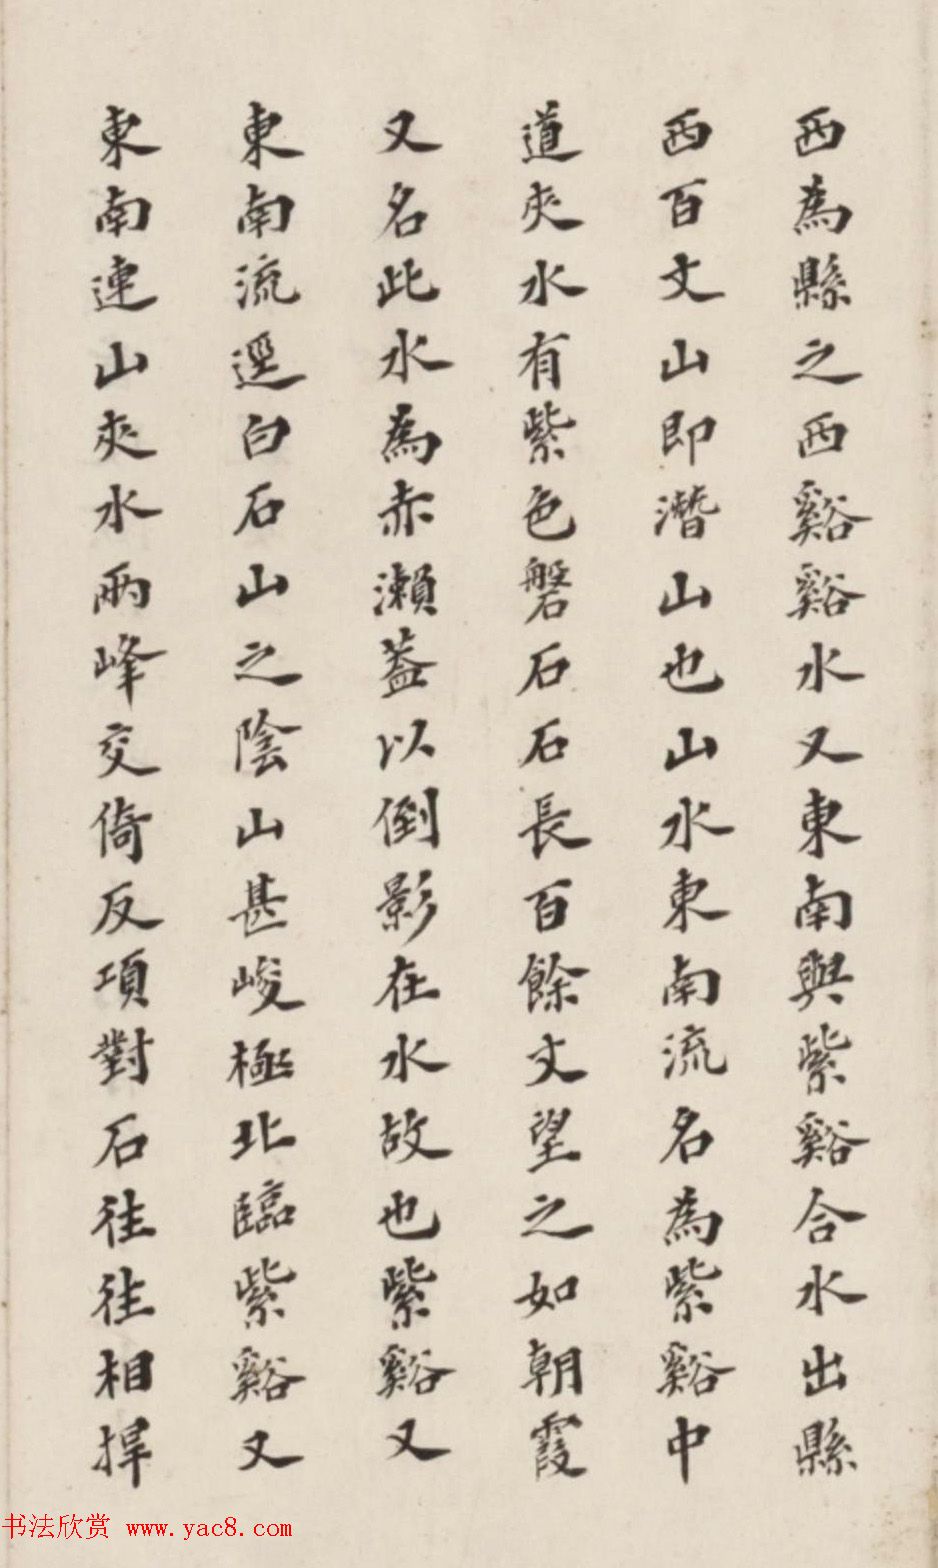 西為縣之西谿谿水又東南與紫谿合水出縣
西百丈山即潛山也山水東南流名為紫谿中
道夾水有紫色磐石石長百餘丈望之如朝霞
又名此水為赤瀨蓋以倒影在水故也紫谿又
東南流逕白石山之陰山甚峻極北臨紫谿又
東南連山夾水兩峰交倚反項對石往往相捍
书法欣赏 www.yac8.com